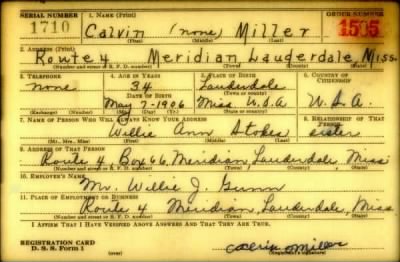 SERIAL NUMBER 1. NAME (Print) ORDER NUMBER
1710 Calvin (none) Miller 1505
(First) (Middle) (Last)
2. ADDRESS (Print)
Route 4 Meridian Lauderdale Miss.
(Number and street or R. F. D. number) (Town) (County) (State)
3. TELEPHONE 4. AGE IN YEARS 5. PLACE OF BIRTH 6. COUNTRY OF CITIZENSHIP
none 34 Lauderdale
DATE OF BIRTH
May 7-1906 Miss U.S.A U.S.A.
(Mo.) (Day) (Yr.) (State or country)
7. NAME OF PERSON WHO WILL ALWAYS KNOW YOUR ADDRESS 8. RELATIONSHIP OF THAT PERSON
Willie Ann Stokes sister
(Mr., Mrs., Miss) (First) (Middle) (Last)
9. ADDRESS OF THAT PERSON
Route 4 Box 66, Meridian Lauderdale Miss
(Number and street or R. F. D. number) (Town) (County) (State)
10. EMPLOYER'S NAME
Mr. Willie J. Gunn
11. PLACE OF EMPLOYMENT OR BUSINESS
Route 4 Meridian, Lauderdale, Miss.
(Number and street or R. F. D. number) (Town) (County) (State)
I AFFIRM THAT I HAVE VERIFIED ABOVE ANSWERS AND THAT THEY ARE TRUE.
REGISTRATION CARD
D. S. S. Form 1 Calvin Miller
(Registrant's signature)